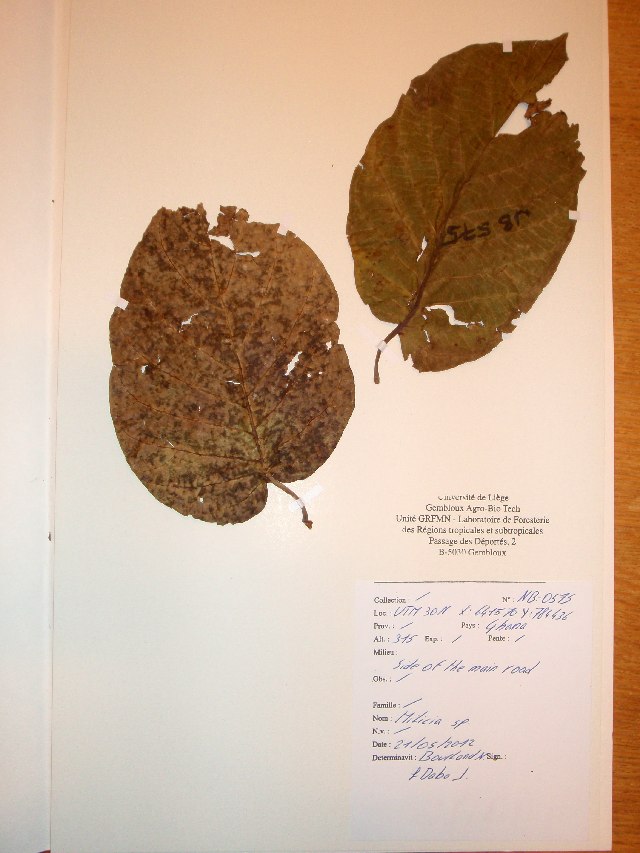 NB 575
Université de Liège
Gembloux Agro-Bio Tech
Unité GRFMN - Laboratoire de Foresterie
des Régions tropicales et subtropicales
Passage des Déportés, 2
B-5030 Gembloux
Collection : / N° : NB-0575
Loc : UTM 30N X: 641570 Y: 784436
Prov. : / Pays : Ghana
Alt. : 315 Exp. : / Pente : /
Milieu :
Side of the main road
Obs. : /
Famille : /
Nom : Milicia sp
N.v. : /
Date : 21/05/2012
Determinavit : Bourland N Sign. :
& Dabo J.